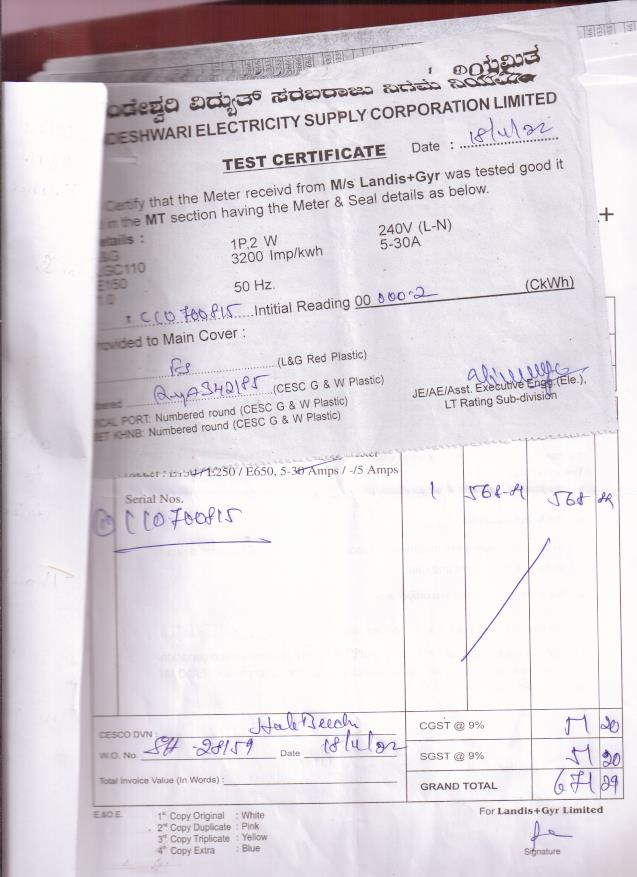 ವಿದ್ಯುತ್ ಸರಬರಾಜು ನಿಗಮ ನಿಯಮಿತ
DESHWARI ELECTRICITY SUPPLY CORPORATION LIMITED
TEST CERTIFICATE
Date :
Certify that the Meter receivd from M/s Landis+Gyr was tested good it
in the MT section having the Meter & Seal details as below.
etails :
1P,2 W 240V (L-N)
3200 Imp/kwh 5-30A
E150
50 Hz.
CC0700815 Intitial Reading 00 000-2 (CkWh)
rovided to Main Cover :
(L&G Red Plastic)
(CESC G & W Plastic)
ICAL PORT: Numbered round (CESC G & W Plastic)
ET KHNB: Numbered round (CESC G & W Plastic)
JE/AE/Asst. Executive Engg.(Ele.),
LT Rating Sub-division
E250 / E650, 5-30 Amps / -/5 Amps
Serial Nos. 1
CC0700815
CESCO DVN :
CGST @ 9% 51 20
W.O. No. 28159 Date
SGST @ 9% 51 20
Total Invoice Value (In Words) :
GRAND TOTAL 671 29
E.&O.E. 1st Copy Original : White
2nd Copy Duplicate : Pink
3rd Copy Triplicate : Yellow
4th Copy Extra : Blue
For Landis+Gyr Limited
Signature